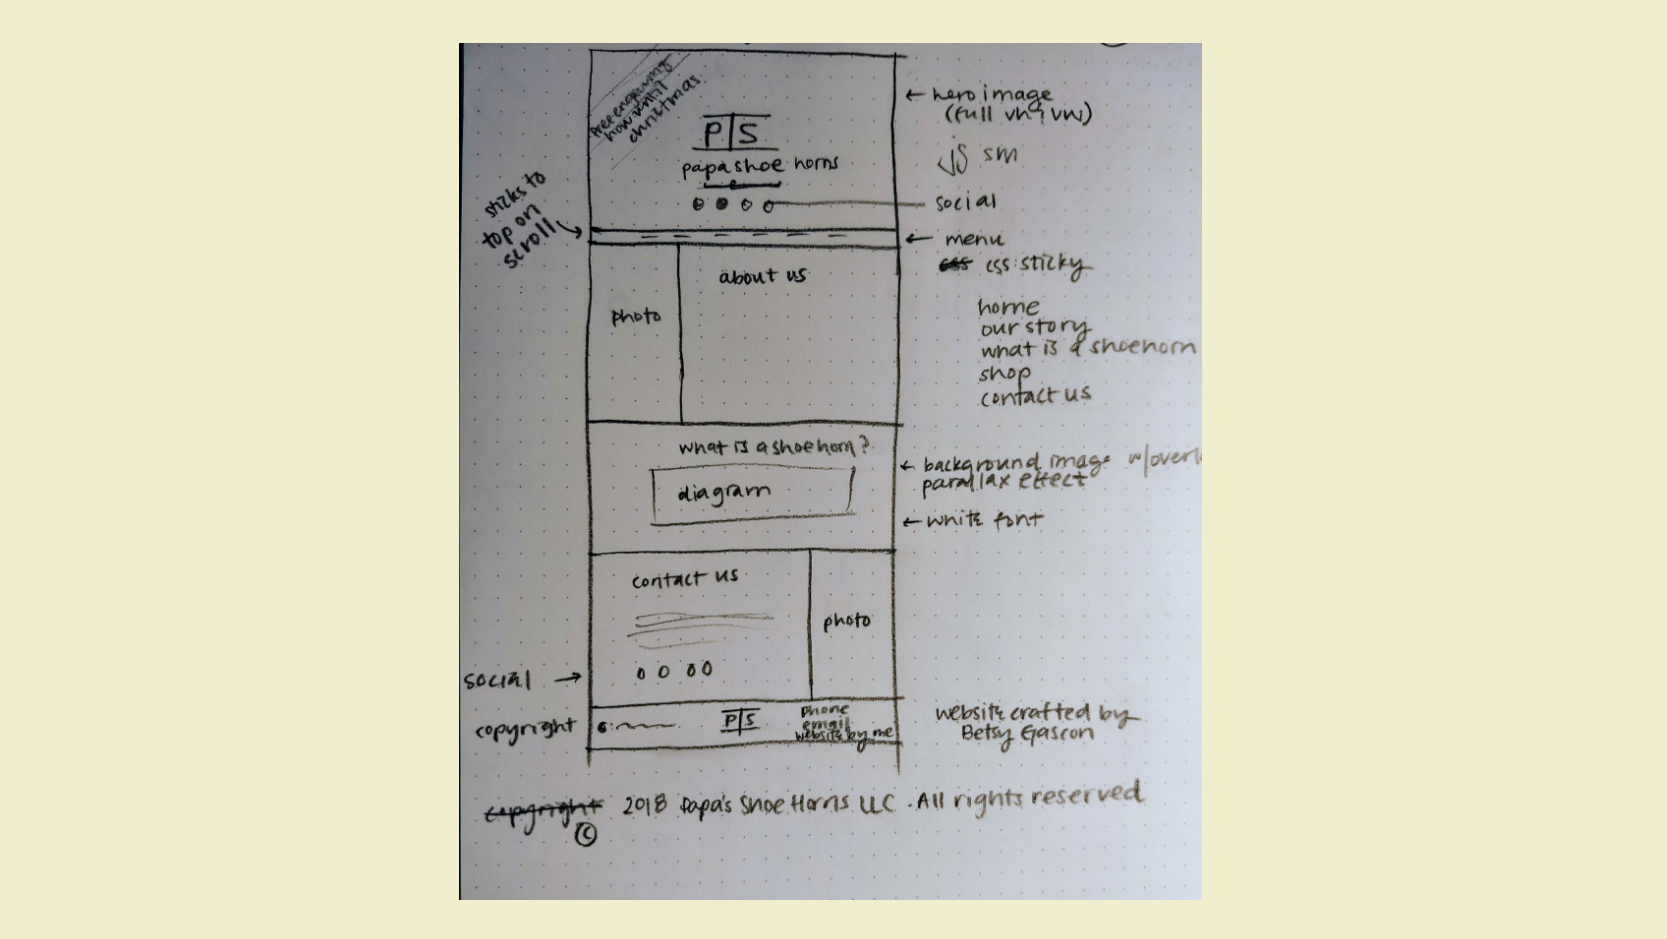 Free engraving
now until
christmas
P|S
papa shoe horns
← hero image
(full vh & vw)
JS sm
social
sticks to
top on
scroll
← menu
css css: sticky
home
our story
what is a shoehorn
shop
contact us
about us
photo
what is a shoehorn?
diagram
← background image w/overl
parallax effect
← white font
contact us
photo
social →
copyright
P|S
phone
email
website by me
website crafted by
Betsy Gascon
copyright 2018 Papa's Shoe Horns LLC. All rights reserved
©